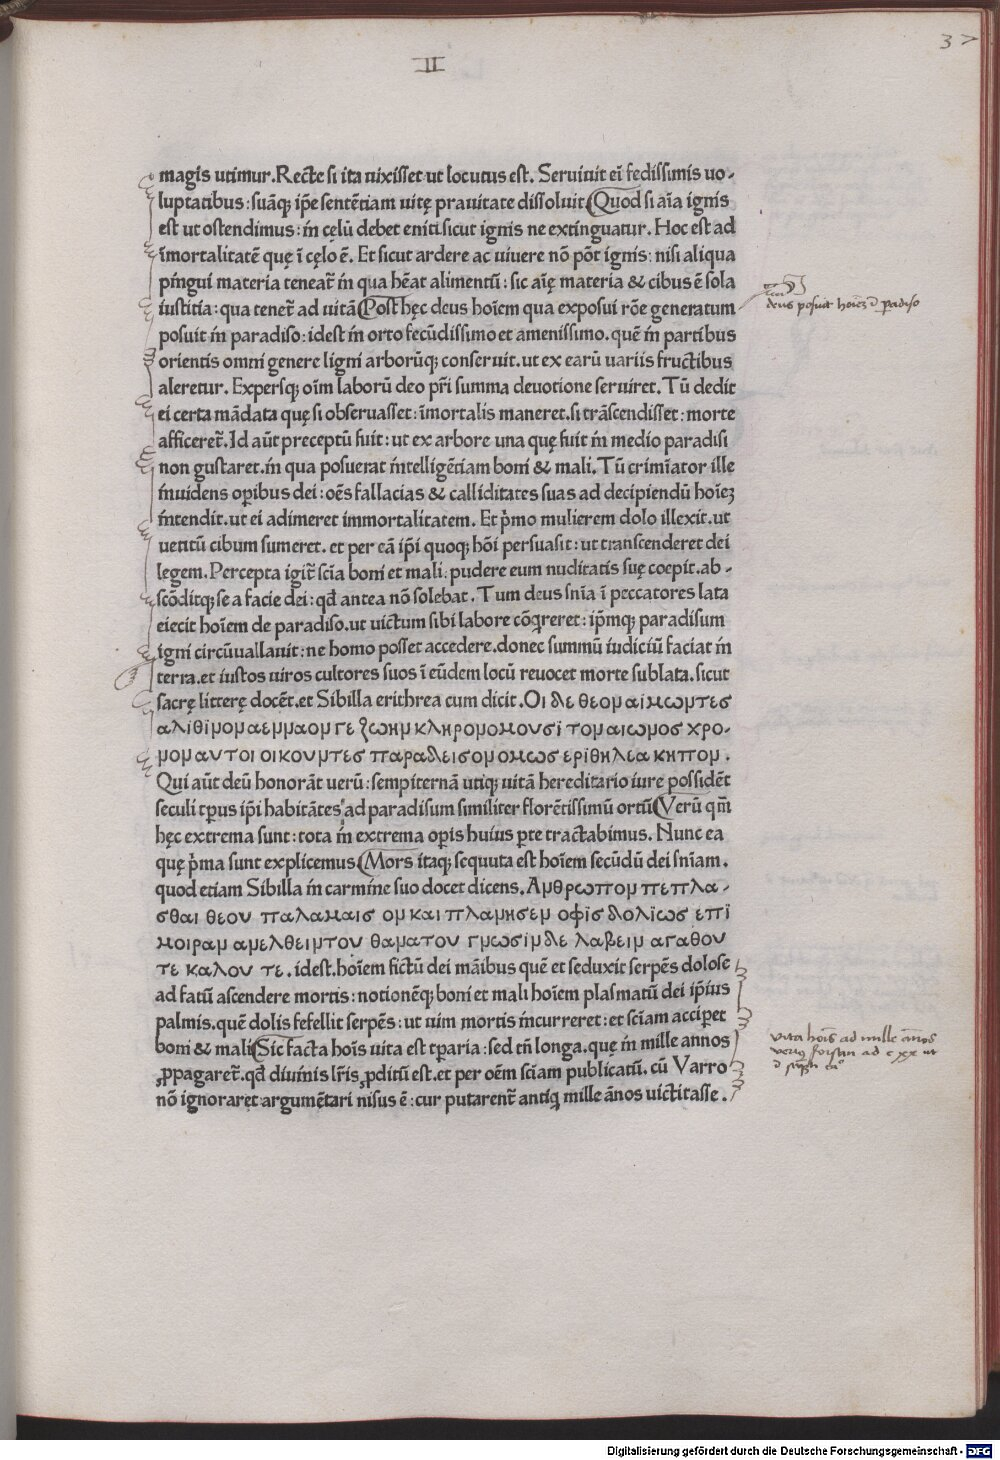 II
37
magis utimur.Recte si ita uixisset ut locutus est. Seruiuit eī fedissimis uo-
luptatibus:suāq; ip̄e sentētiam uitę prauitate dissoluit(Quod si aīa ignis
est ut ostendimus:in cęlū debet eniti.sicut ignis ne extinguatur. Hoc est ad
īmortalitatē quę ī cęlo ē. Et sicut ardere ac uiuere nō pōt ignis: nisi aliqua
pingui materia teneat̃ in qua hēat alimentū: sic aīę materia & cibus ē sola
iustitia: qua tenet̃ ad uitā(Post hęc deus hoīem qua exposui rōe generatum
posuit in paradiso:idest in orto fecūdissimo et amenissimo. quē in partibus
orientis omni genere ligni arborūq; conseruit.ut ex earū uariis fructibus
aleretur. Expersq; oīm laborū deo pr̄i summa deuotione seruiret. Tū dedit
ei certa mādata quę si obseruasset: īmortalis maneret.si trāscendisset: morte
afficeret̃. Id aūt preceptū fuit: ut ex arbore una quę fuit in medio paradisi
non gustaret.in qua posuerat intelligētiam boni & mali. Tū crimīator ille
inuidens oꝑibus dei: oēs fallacias & calliditates suas ad decipiendū hoīeꝫ
intendit.ut ei adimeret immortalitatem. Et p̄mo mulierem dolo illexit.ut
uetitū cibum sumeret. et per eā ip̄i quoq; hōi persuasit: ut transcenderet dei
legem. Percepta igit̃ scīa boni et mali: pudere eum nuditatis suę coepit. ab-
scōditq; se a facie dei: qd̄ antea nō solebat. Tum deus snīa ī peccatores lata
eiecit hoīem de paradiso.ut uictum sibi labore cōq̄reret: ip̄mq; paradisum
igni circūuallauit: ne homo posset accedere.donec summū iudiciū faciat in
terra.et iustos uiros cultores suos ī eūdem locū reuocet morte sublata. sicut
sacrę litterę docēt.et Sibilla erithrea cum dicit. Οι δε θεομ αιμωμτες
αλιθιμομ αεμμαομ γε ζωημ κληρομομουσι τομ αιωμος χρο-
μομ αυτοι οικουμτες παραδεισομ ομως εριθηλεα κηπομ.
Qui aūt deū honorāt uerū: sempiternā utiq; uitā hereditario iure possidēt
seculi tꝑus ip̄i habitātes ad paradisum similiter florētissimū ortū(Verū qm̄
hęc extrema sunt: tota in extrema oꝑis huius ꝑte tractabimus. Nunc ea
quę p̄ma sunt explicemus(Mors itaq; sequuta est hoīem secūdū dei snīam.
quod etiam Sibilla in carmine suo docet dicens. Αμθρωπομ πεπλα-
σθαι θεου παλαμαις ομ και πλαμησεμ οφις δολιως επι
μοιραμ αμελθειμ του θαματου γμωσιμ δε λαβειμ αγαθου
τε καλου τε. idest.hoīem fictū dei māibus quē et seduxit serpēs dolose
ad fatū ascendere mortis: notionēq; boni et mali hoīem plasmatū dei ip̄ius
palmis.quē dolis fefellit serpēs: ut uim mortis incurreret: et scīam acciꝑet
boni & mali(Sic facta hoīs uita est tꝑaria: sed tn̄ longa.quę in mille annos
ꝓpagaret̃. qd̄ diuinis lr̄is ꝓditū est.et per oēm scīam publicatū. cū Varro
nō ignoraret argumētari nisus ē: cur putarent̃ antiq̄ mille ānos uictitasse.
deus posuit hoīeꝫ ī paradiso
vita hoīs ad mille ānos
Digitalisierung gefördert durch die Deutsche Forschungsgemeinschaft - DFG